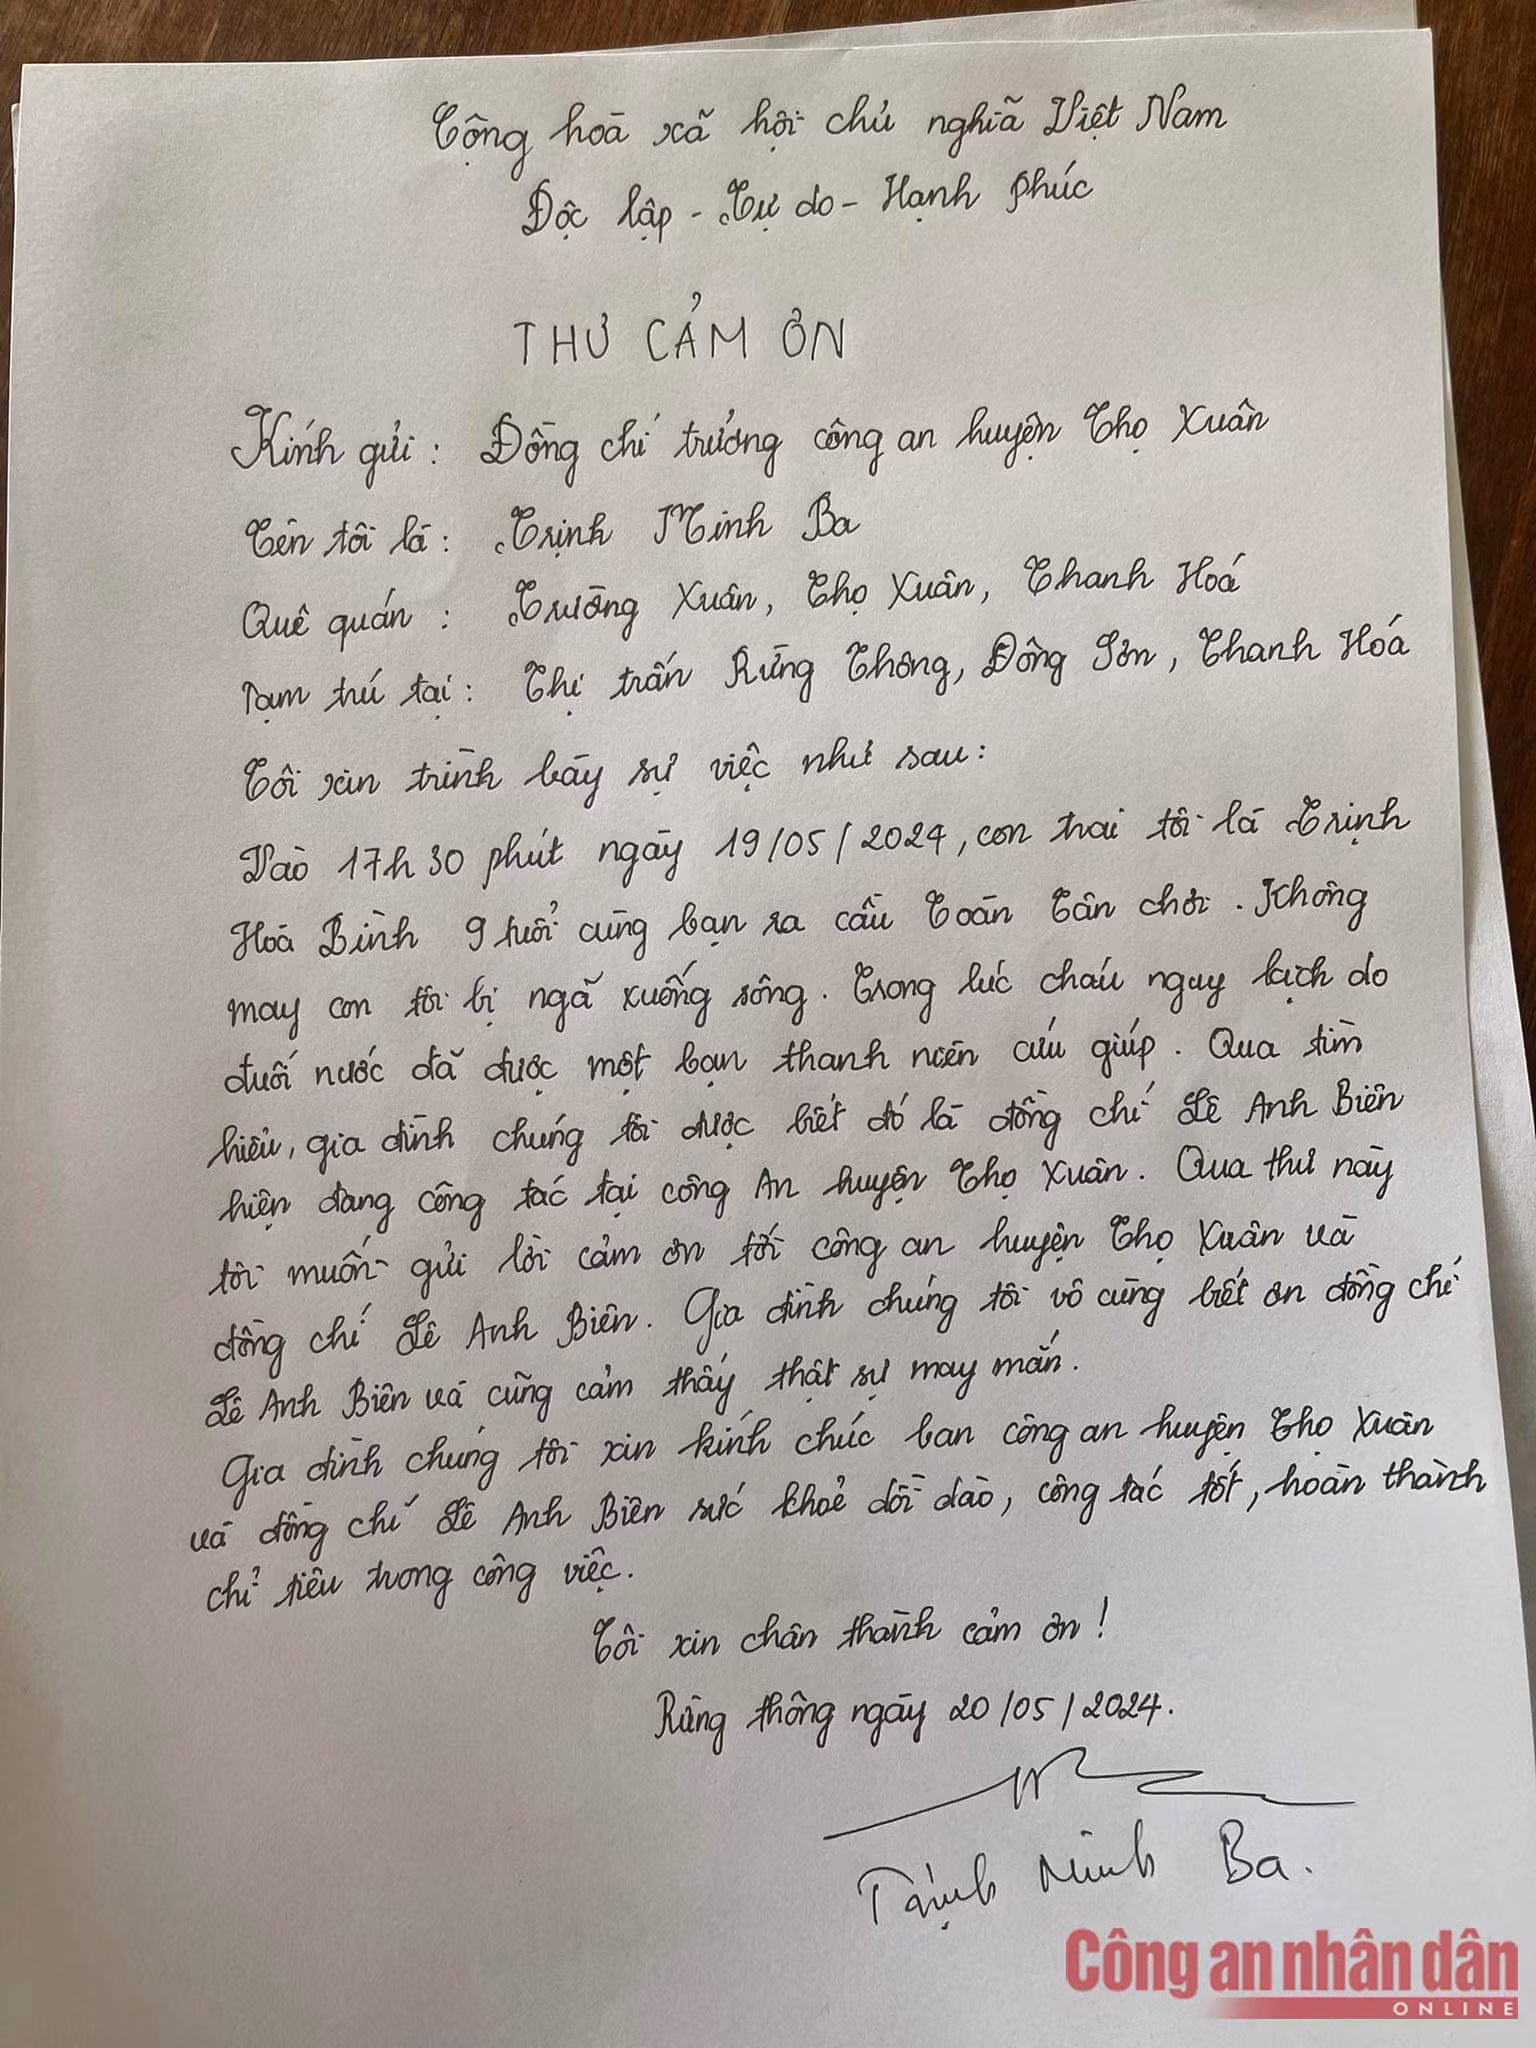 Cộng hoà xã hội chủ nghĩa Việt Nam
Độc lập - Tự do - Hạnh phúc
THƯ CẢM ƠN
Kính gửi : Đồng chí trưởng công an huyện Thọ Xuân
Tên tôi là : Trịnh Minh Ba
Quê quán : Trường Xuân, Thọ Xuân, Thanh Hoá
Tạm trú tại : Thị trấn Rừng Thông, Đông Sơn, Thanh Hoá
Tôi xin trình bày sự việc như sau :
Vào 17h 30 phút ngày 19/05/2024, con trai tôi là Trịnh
Hoà Bình 9 tuổi cùng bạn ra cầu Toán Tân chơi. Không
may con tôi bị ngã xuống sông. Trong lúc cháu nguy kịch do
đuối nước đã được một bạn thanh niên cứu giúp. Qua tìm
hiểu, gia đình chúng tôi được biết đó là đồng chí Lê Anh Biên
hiện đang công tác tại công An huyện Thọ Xuân. Qua thư này
tôi muốn gửi lời cảm ơn tới công an huyện Thọ Xuân và
đồng chí Lê Anh Biên. Gia đình chúng tôi vô cùng biết ơn đồng chí
Lê Anh Biên và cũng cảm thấy thật sự may mắn.
Gia đình chúng tôi xin kính chúc ban công an huyện Thọ Xuân
và đồng chí Lê Anh Biên sức khoẻ dồi dào, công tác tốt, hoàn thành
chỉ tiêu trong công việc.
Tôi xin chân thành cảm ơn !
Rừng thông ngày 20/05/2024.
Trịnh Minh Ba.
Công an nhân dân
ONLINE